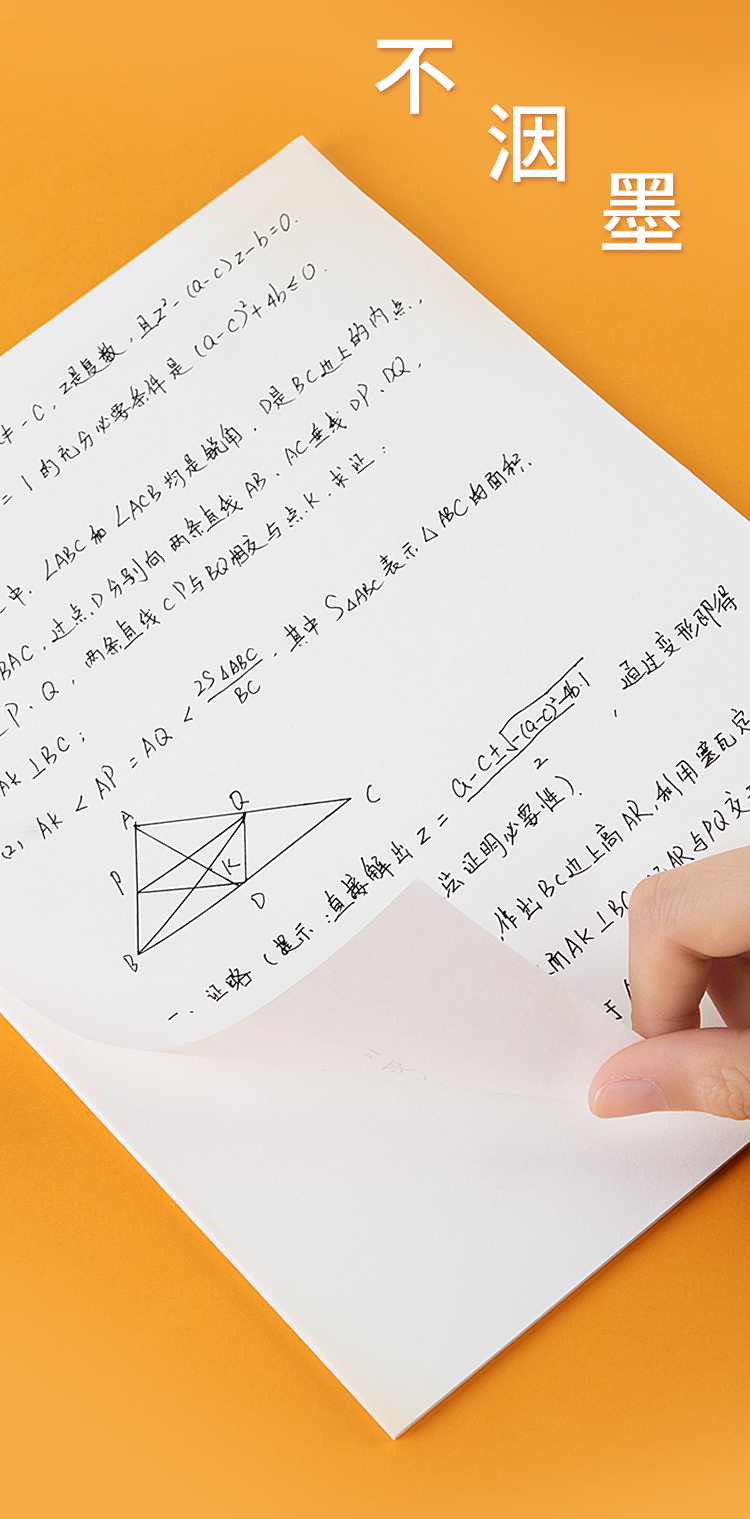 不洇墨
≠-C，z是复数，且z²-(a-c)z-b=0.
=1的充分必要条件是(a-c)²+4b≤0.
中．∠ABC和∠ACB均是锐角．D是BC边上的内点．
BAC，过点D分别向两条直线AB、AC垂线DP、DQ．
P、Q，两条直线CP与BQ相交与点K．求证：
AK⊥BC；
(2) AK<AP=AQ<2S△ABC/BC．其中S△ABC表示△ABC的面积．
A Q C
P K D
B
一、证略(提示：直接解出z=a-c±√-(a-c)²-4b·1/2，通过变形即得
法证明必要性)．
作出BC边上高AR，利用塞瓦定
而AK⊥BC AR与PQ交
于